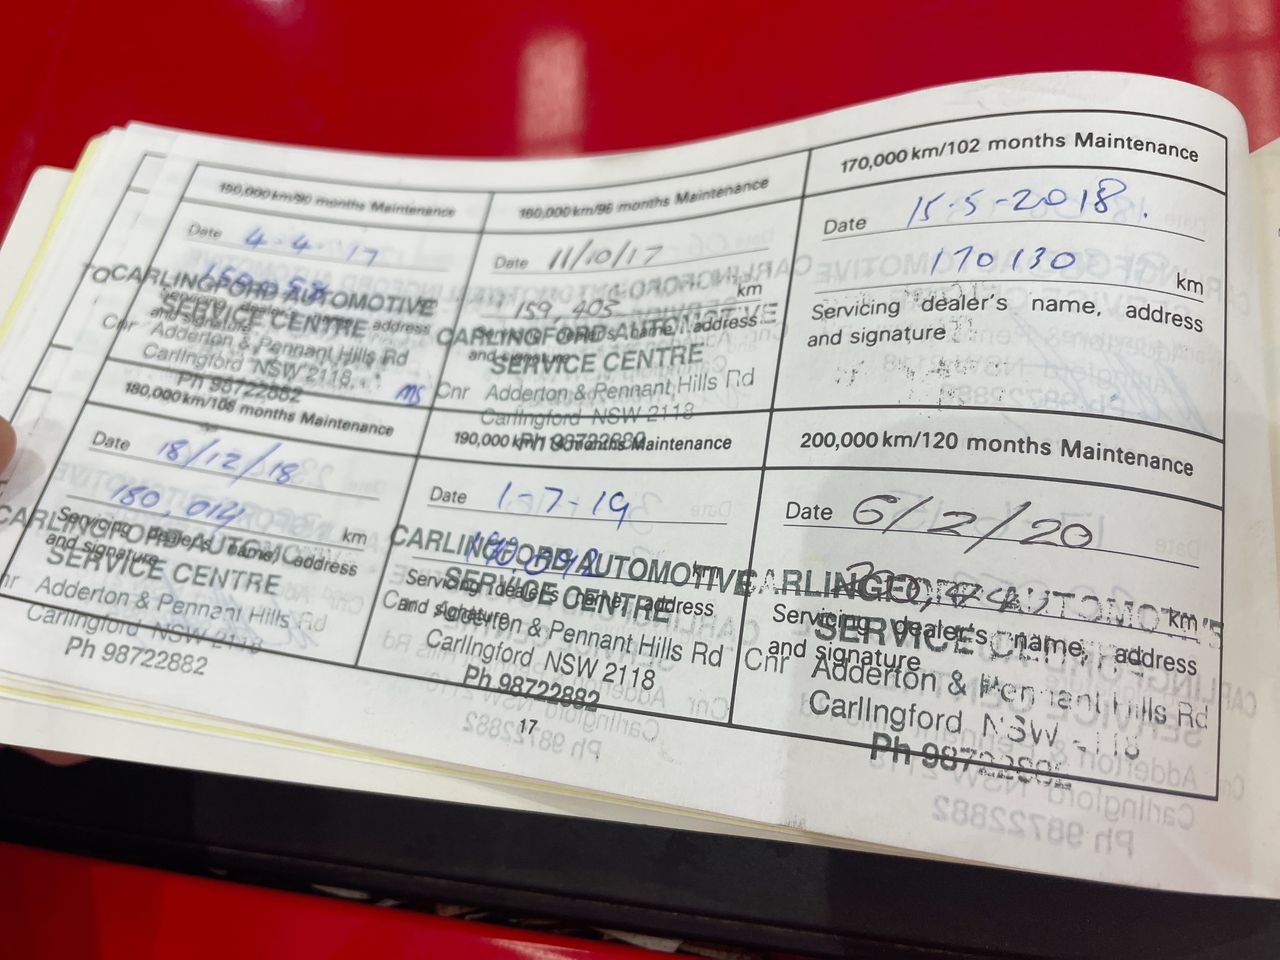 150,000 km/90 months Maintenance
Date 4-4-17
CARLINGFORD AUTOMOTIVE
SERVICE CENTRE
Servicing dealer's name, address
and signature
Cnr Adderton & Pennant Hills Rd
Carlingford NSW 2118
Ph 98722882
160,000 km/96 months Maintenance
Date 11/10/17
159,403 km
CARLINGFORD AUTOMOTIVE
Servicing dealer's name, address
and signature
SERVICE CENTRE
Cnr Adderton & Pennant Hills Rd
Carlingford NSW 2118
Ph 98722882
170,000 km/102 months Maintenance
Date 15-5-2018.
170130 km
Servicing dealer's name, address
and signature
180,000 km/108 months Maintenance
Date 18/12/18
180,014 km
CARLINGFORD AUTOMOTIVE
Servicing dealer's name, address
and signature
SERVICE CENTRE
Cnr Adderton & Pennant Hills Rd
Carlingford NSW 2118
Ph 98722882
190,000 km/114 months Maintenance
Date 1-7-19
km
CARLINGFORD AUTOMOTIVE
Servicing dealer's name, address
and signature
SERVICE CENTRE
Cnr Adderton & Pennant Hills Rd
Carlingford NSW 2118
Ph 98722882
200,000 km/120 months Maintenance
Date 6/2/20
km
CARLINGFORD AUTOMOTIVE
Servicing dealer's name, address
and signature
SERVICE CENTRE
Cnr Adderton & Pennant Hills Rd
Carlingford NSW 2118
Ph 98722882
17